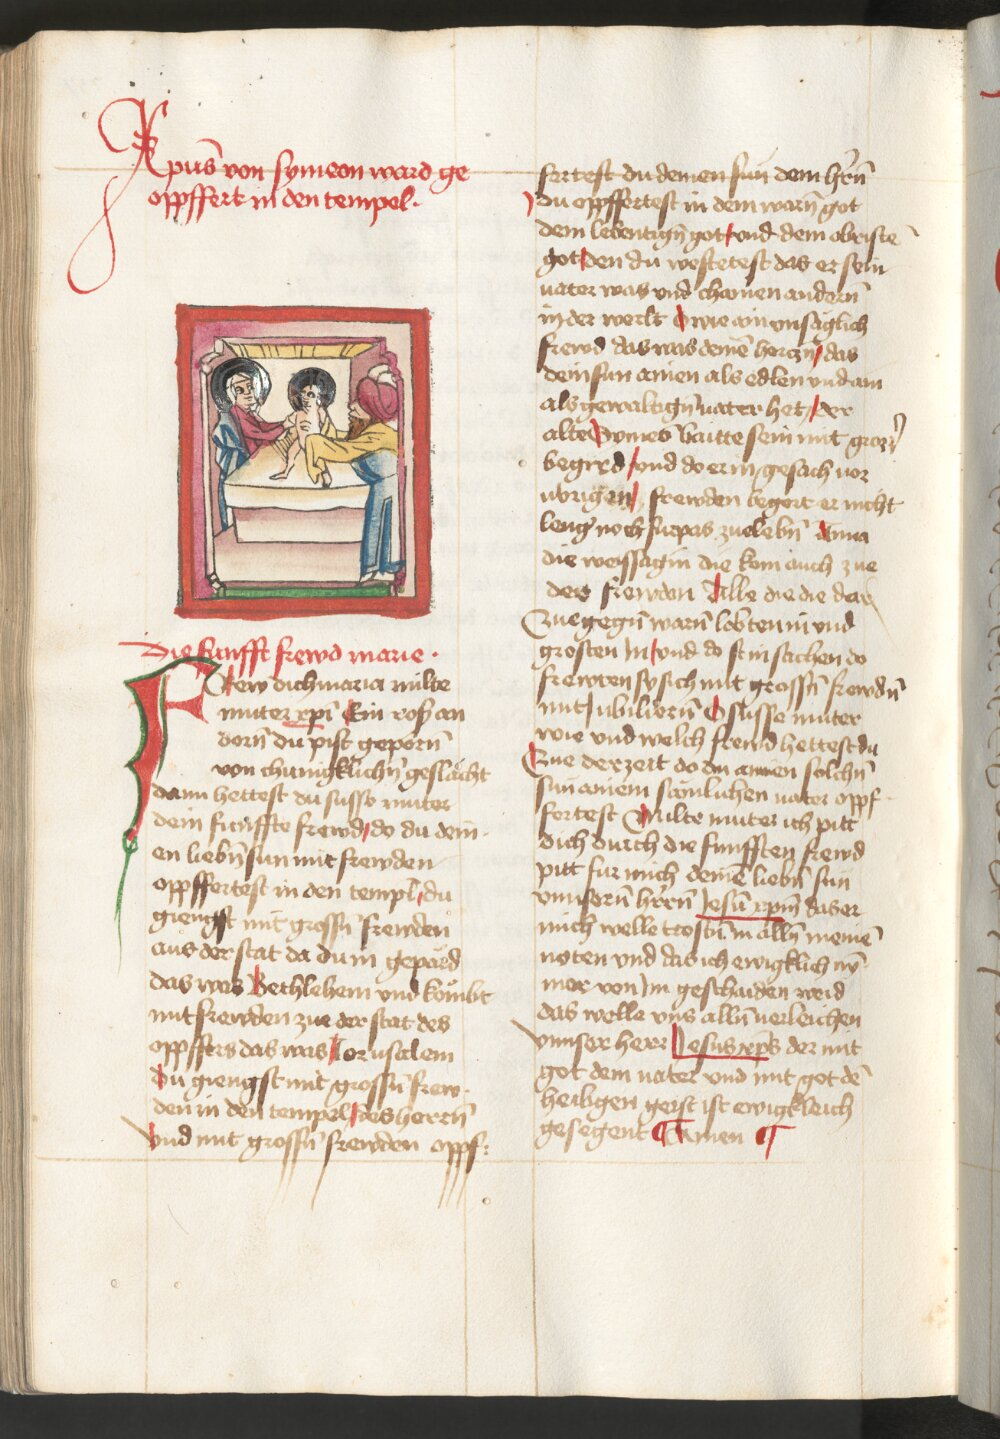 Xpūs von symeon ward ge
opffert in den tempel.
Die funfft frewd marie.
Frew dich maria milte
muter xp̄i Ein ros an
dorn̄ du pist geporn̄
von chunigklichn̄ geslächt
dann hettest du susse muter
dein funffte frewd do du dein
en liebn̄ sun mit frewden
opffertest in den templ̄ du
giengst mit grossn̄ frewden
aus der stat da du in gepard
das was Bethlehem vnd kombt
mit frewden zue der stat des
opffers das was Jerusalem
Du giengst mit grossn̄ frew
den in den tempel des herrn̄
Vnd mit grossn̄ frewden opf
fertest du deinen sun dem hrn̄
du opffertest in dem warn̄ got
dem lebentign̄ got vnd dem obriste
got den du westetest das er sein
vater was vnd chainen andern̄
in der werlt O wie ain vnsäglich
frewd das was deinē herczn̄ das
dein sun ainen als edlen vnd ain
als gewaltign̄ vater het der
alte Symeō baitte sein mit grozz̄
begird vnd do er in gesach vor
vbrigen frewden begert er nicht
leng noch furpas zueleben̄ Anna
die weissagin die kom auch zue
den frewden Alle die die dar
Zuegegn̄ warn̄ lobten in vnd
grosten In vnd do si in sachen do
frewten sy sich mit grossn̄ frewdn̄
mit Jubiliern̄ O süsse muter
wie vnd welch frewd hettest du
Zue der zeit do du ainen solchn̄
sun ainem sömlichen vater opf
fertest Milte muter ich pitt
dich durch die funfften frewd
pitt fur mich deinē liebn̄ sun
vnnsern̄ hrn̄ Jesū xp̄m̄ das er
mich welle trostn̄ in alln̄ meinē
noten vnd das ich ewigklich nȳ
mer von Im geschaiden werd
das welle vns alln̄ verleichen
vnnser herr Jesus xp̄s der mit
got dem vater vnd mit got dē
heiligen geist ist ewigkleich
gesegent Amen